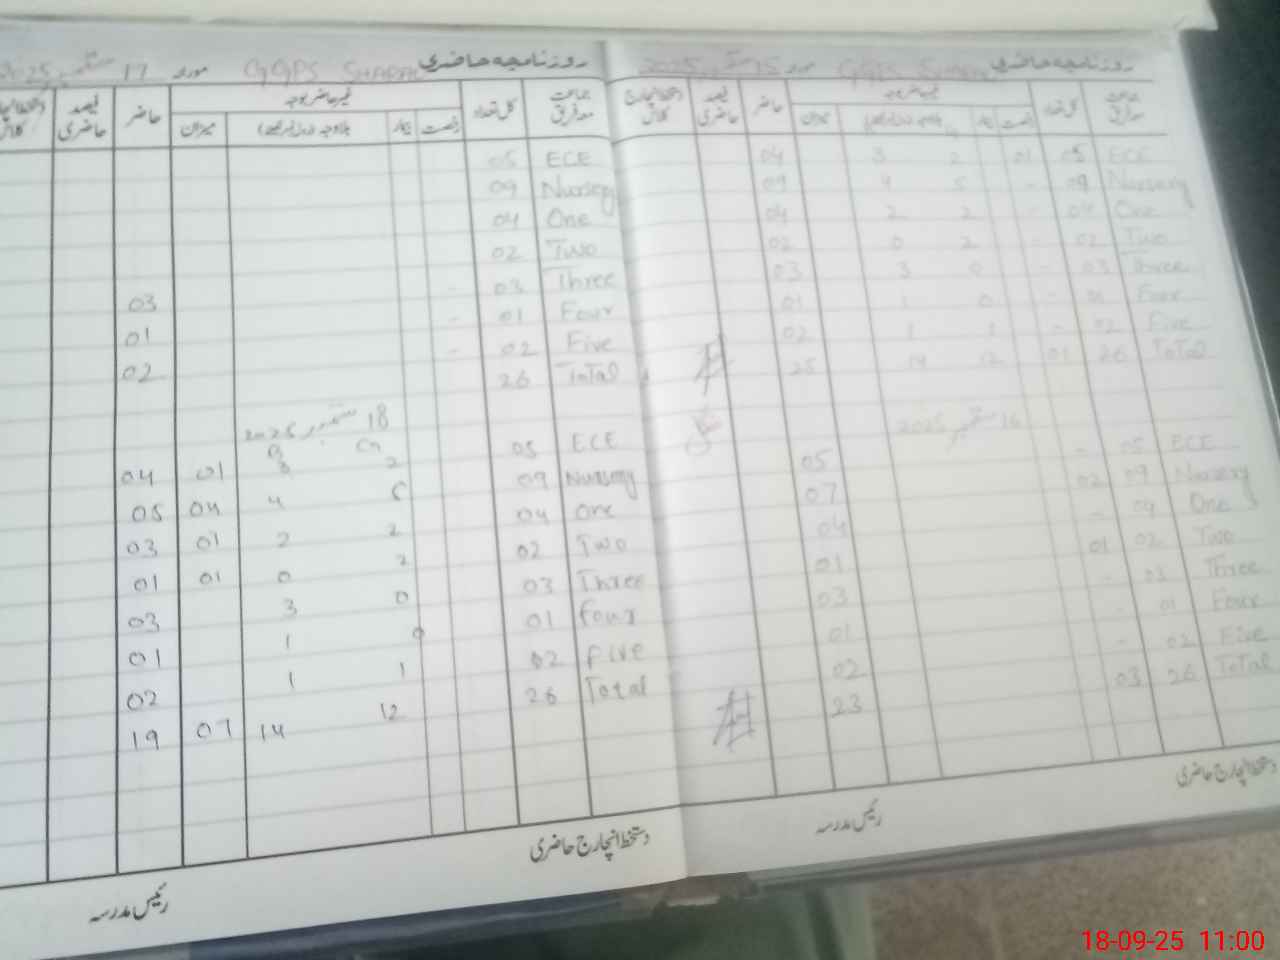 روزنامچہ حاضری GGPS مورد 15 ستمبر 2025
جماعت معہ فریق کل تعداد غیر حاضر بوجہ حاضر فیصد حاضری دستخط انچارج کلاس
رخصت بیمار میزان
ECE 05 01 2 3 04
Nursery 09 - 5 4 09
One 04 - 2 2 04
Two 02 - 2 0 02
Three 03 - 0 3 03
Four 01 - 0 1 01
Five 02 - 1 1 02
Total 26 01 12 14 25
16 ستمبر 2025
ECE 05 - 05
Nursery 09 02 07
One 04 - 04
Two 02 01 01
Three 03 - 03
Four 01 - 01
Five 02 - 02
Total 26 03 23
دستخط انچارج حاضری
رئیس مدرسہ
روزنامچہ حاضری GGPS مورد 17 ستمبر 2025
جماعت معہ فریق کل تعداد غیر حاضر بوجہ حاضر فیصد حاضری
رخصت بیمار بلاوجہ میزان
ECE 05
Nursery 09
One 04
Two 02
Three 03 - 03
Four 01 - 01
Five 02 - 02
Total 26
18 ستمبر 2025
ECE 05 2 3 01 04
Nursery 09 5 4 04 05
One 04 2 2 01 03
Two 02 2 0 01 01
Three 03 0 3 03
Four 01 0 1 01
Five 02 1 1 02
Total 26 12 14 07 19
دستخط انچارج حاضری
رئیس مدرسہ
18-09-25 11:00